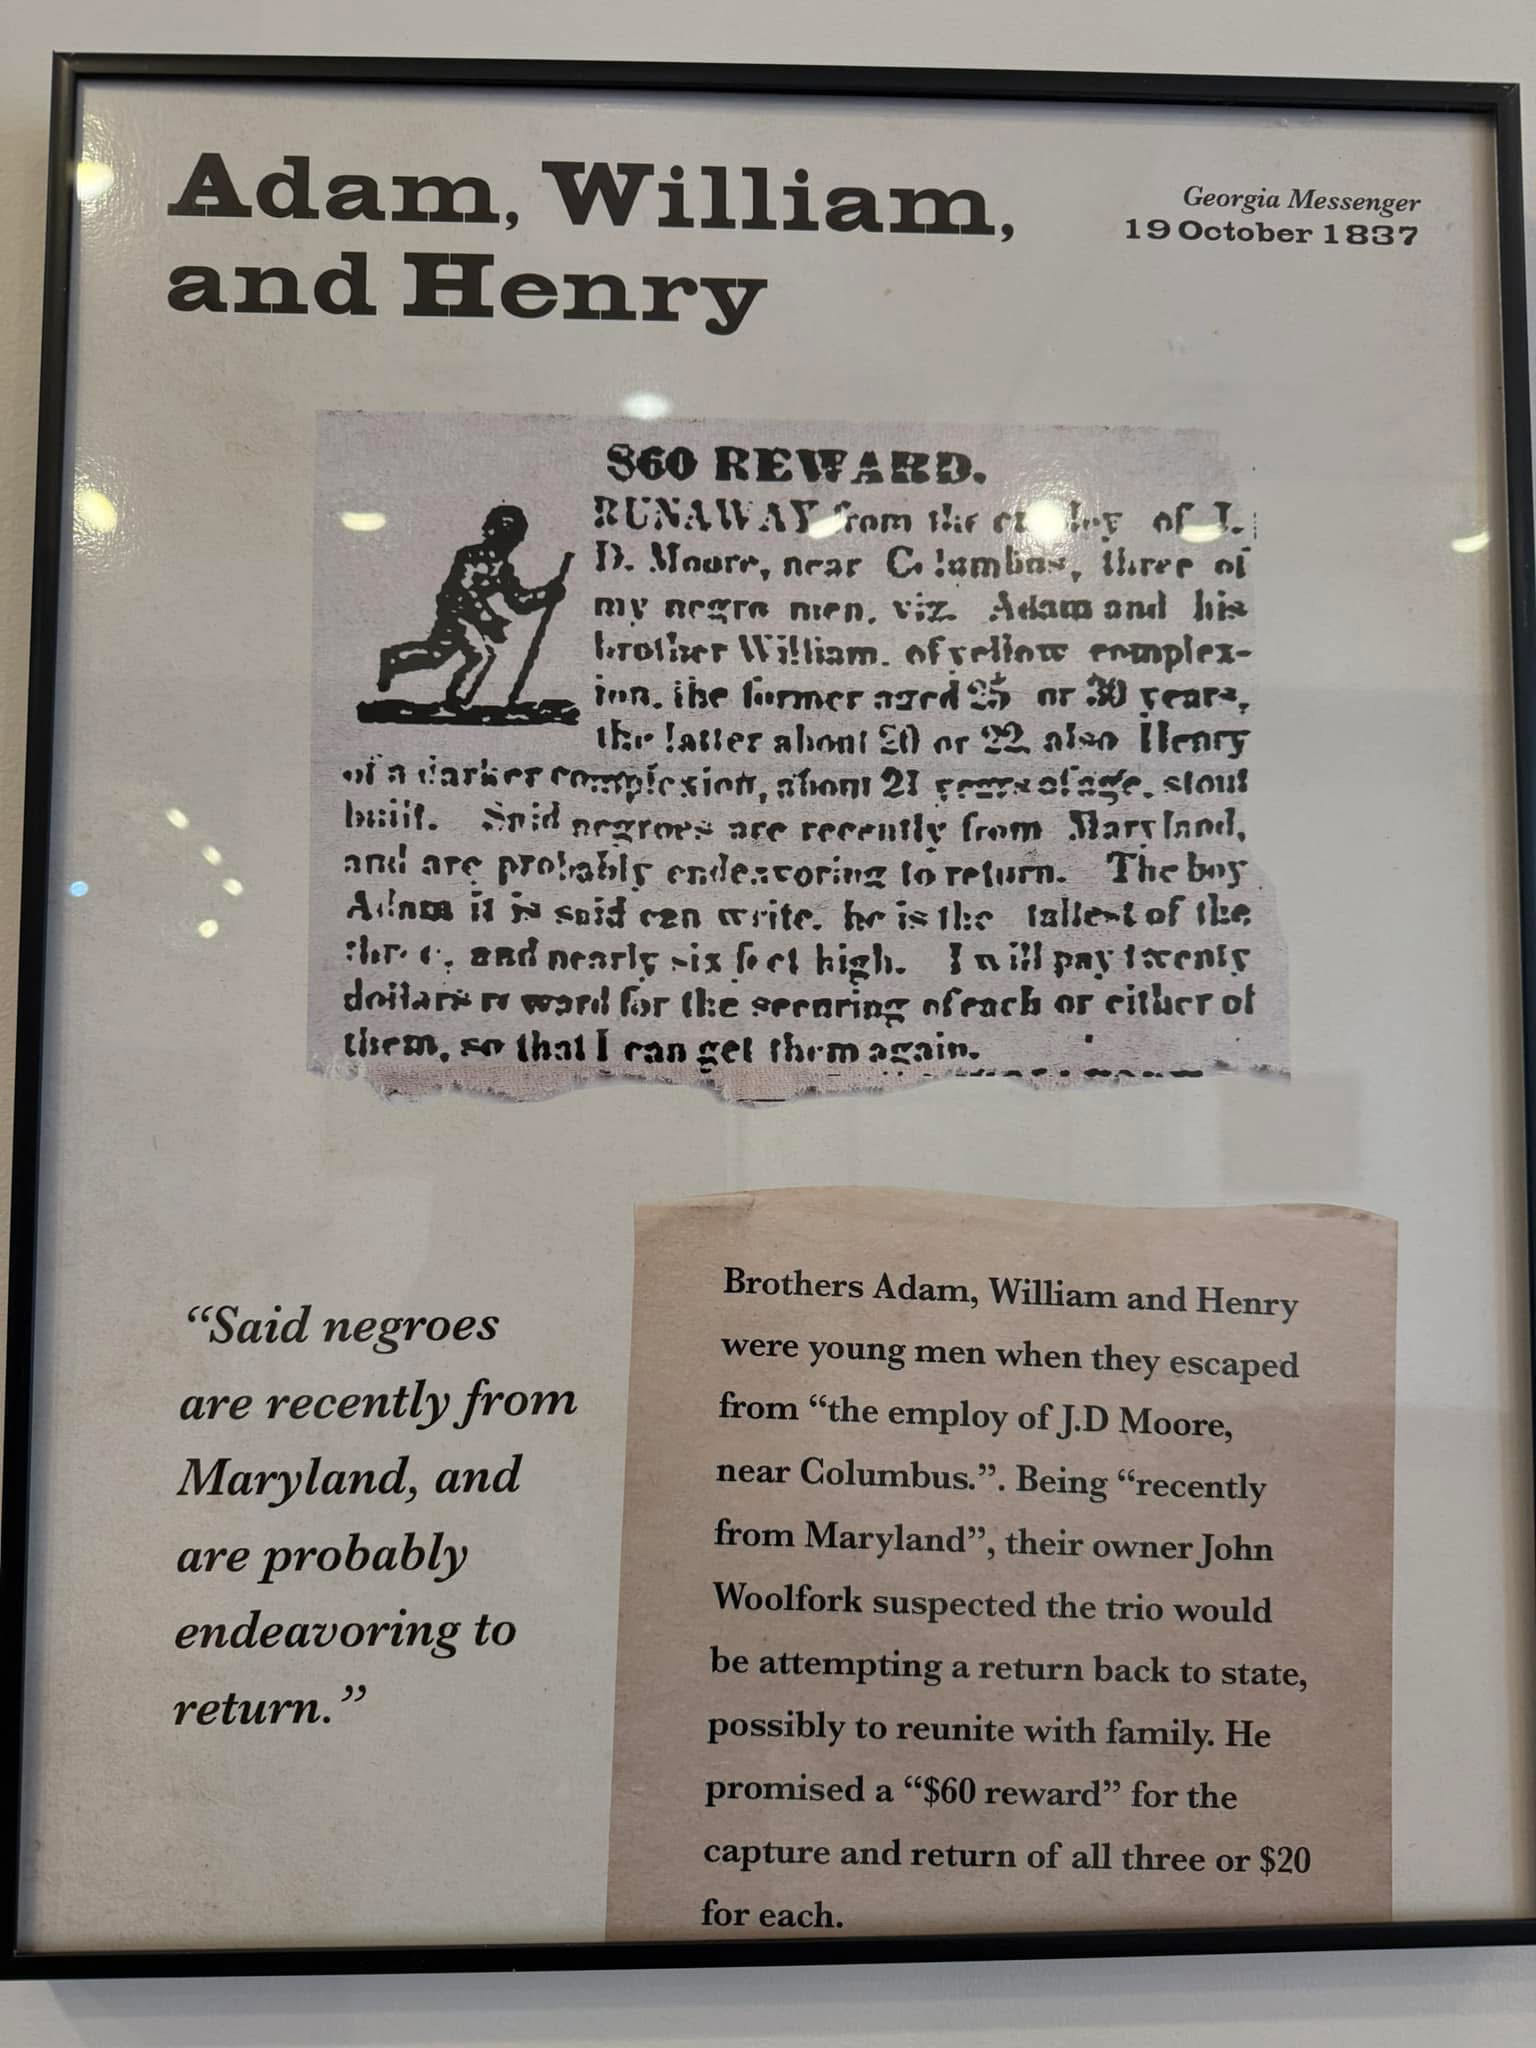 Adam, William,
and Henry
Georgia Messenger
19 October 1837
$60 REWARD.
RUNAWAY from the employ of J.
D. Moore, near Columbus, three of
my negro men, viz. Adam and his
brother William, of yellow complex-
ion, the former aged 25 or 30 years,
the latter about 20 or 22 also Henry
of a darker complexion, about 21 years of age, stout
built. Said negroes are recently from Maryland,
and are probably endeavoring to return. The boy
Adam it is said can write, he is the tallest of the
three, and nearly six feet high. I will pay twenty
dollars reward for the securing of each or either of
them, so that I can get them again.
“Said negroes
are recently from
Maryland, and
are probably
endeavoring to
return.”
Brothers Adam, William and Henry
were young men when they escaped
from “the employ of J.D Moore,
near Columbus.”. Being “recently
from Maryland”, their owner John
Woolfork suspected the trio would
be attempting a return back to state,
possibly to reunite with family. He
promised a “$60 reward” for the
capture and return of all three or $20
for each.